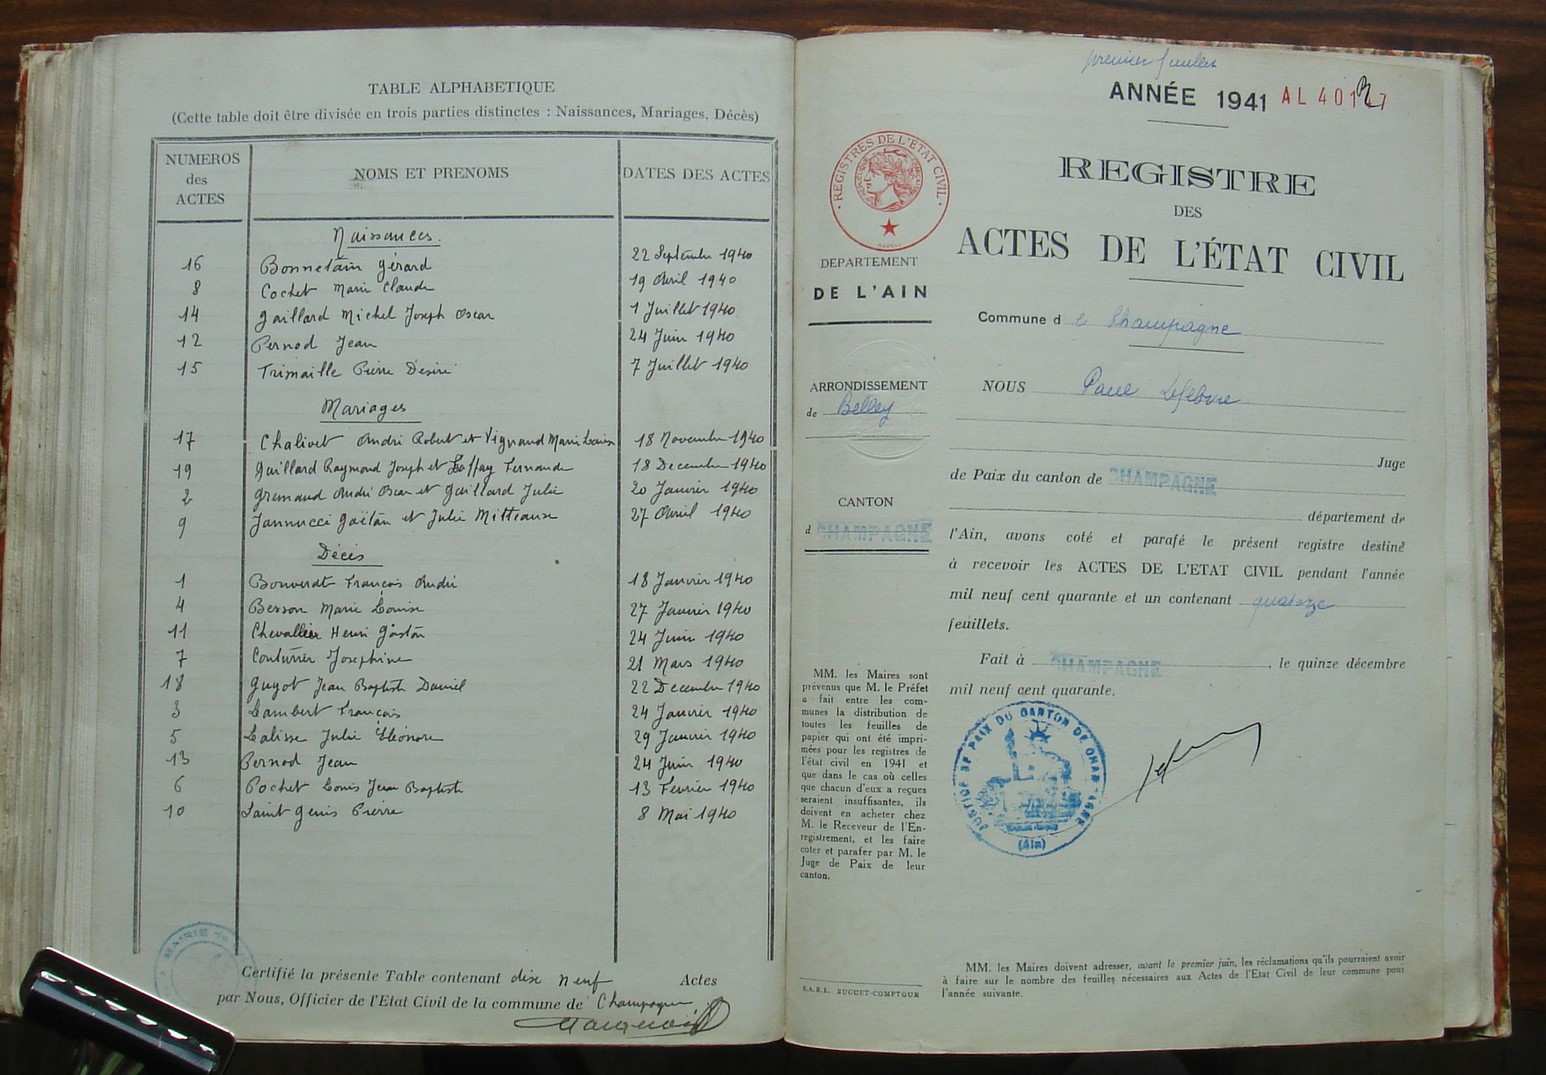 TABLE ALPHABETIQUE
(Cette table doit être divisée en trois parties distinctes : Naissances, Mariages, Décès)
NUMEROS des ACTES NOMS ET PRENOMS DATES DES ACTES
Naissances.
16 Bonnetain Gérard 22 Septembre 1940
8 Cochet Marie Claude 19 Avril 1940
14 Gaillard Michel Joseph Oscar 1 Juillet 1940
12 Pernod Jean 24 Juin 1940
15 Trimaille Pierre Désiré 7 Juillet 1940
Mariages
17 Chalivet André Robert et Vignand Marie Louise 18 Novembre 1940
19 Gaillard Raymond Joseph et Laffay Fernande 18 Decembre 1940
2 Gremaud André Oscar et Gaillard Julie 20 Janvier 1940
9 Jannucci Gaëtan et Julie Mitteaux 27 Avril 1940
Décès
1 Bonverat François André 18 Janvier 1940
4 Besson Marie Louise 27 Janvier 1940
11 Chevallier Henri Gaston 24 Juin 1940
7 Conturier Josephine 21 Mars 1940
18 Guyot Jean Baptiste Daniel 22 Decembre 1940
3 Lambert François 24 Janvier 1940
5 Lalisse Julie Eléonore 29 Janvier 1940
13 Pernod Jean 24 Juin 1940
6 Pochet Louis Jean Baptiste 13 Fevrier 1940
10 Saint Genis Pierre 8 Mai 1940
MAIRIE
Certifié la présente Table contenant dix neuf Actes
par Nous, Officier de l'Etat Civil de la commune de Champagne
premier feuillet
ANNÉE 1941 AL 401
REGISTRES DE L'ÉTAT CIVIL
REGISTRE
DES
ACTES DE L'ÉTAT CIVIL
DEPARTEMENT
DE L'AIN
ARRONDISSEMENT
de Belley
CANTON
d CHAMPAGNE
MM. les Maires sont
prévenus que M. le Préfet
a fait entre les com-
munes la distribution de
toutes les feuilles de
papier qui ont été impri-
mées pour les registres de
l'état civil en 1941 et
que dans le cas où celles
que chacun d'eux a reçues
seraient insuffisantes, ils
doivent en acheter chez
M. le Receveur de l'En-
registrement, et les faire
coter et parafer par M. le
Juge de Paix de leur
canton.
S.A.R.L. BUGUET-COMPTOUR
Commune d e Champagne
NOUS Paul Lefebvre
Juge
de Paix du canton de CHAMPAGNE
département de
l'Ain, avons coté et parafé le présent registre destiné
à recevoir les ACTES DE L'ETAT CIVIL pendant l'année
mil neuf cent quarante et un contenant quatorze
feuillets.
Fait à CHAMPAGNE, le quinze décembre
mil neuf cent quarante.
JUSTICE DE PAIX DU CANTON DE CHAMPAGNE
(Ain)
MM. les Maires doivent adresser, avant le premier juin, les réclamations qu'ils pourraient avoir
à faire sur le nombre des feuilles nécessaires aux Actes de l'Etat Civil de leur commune pour
l'année suivante.